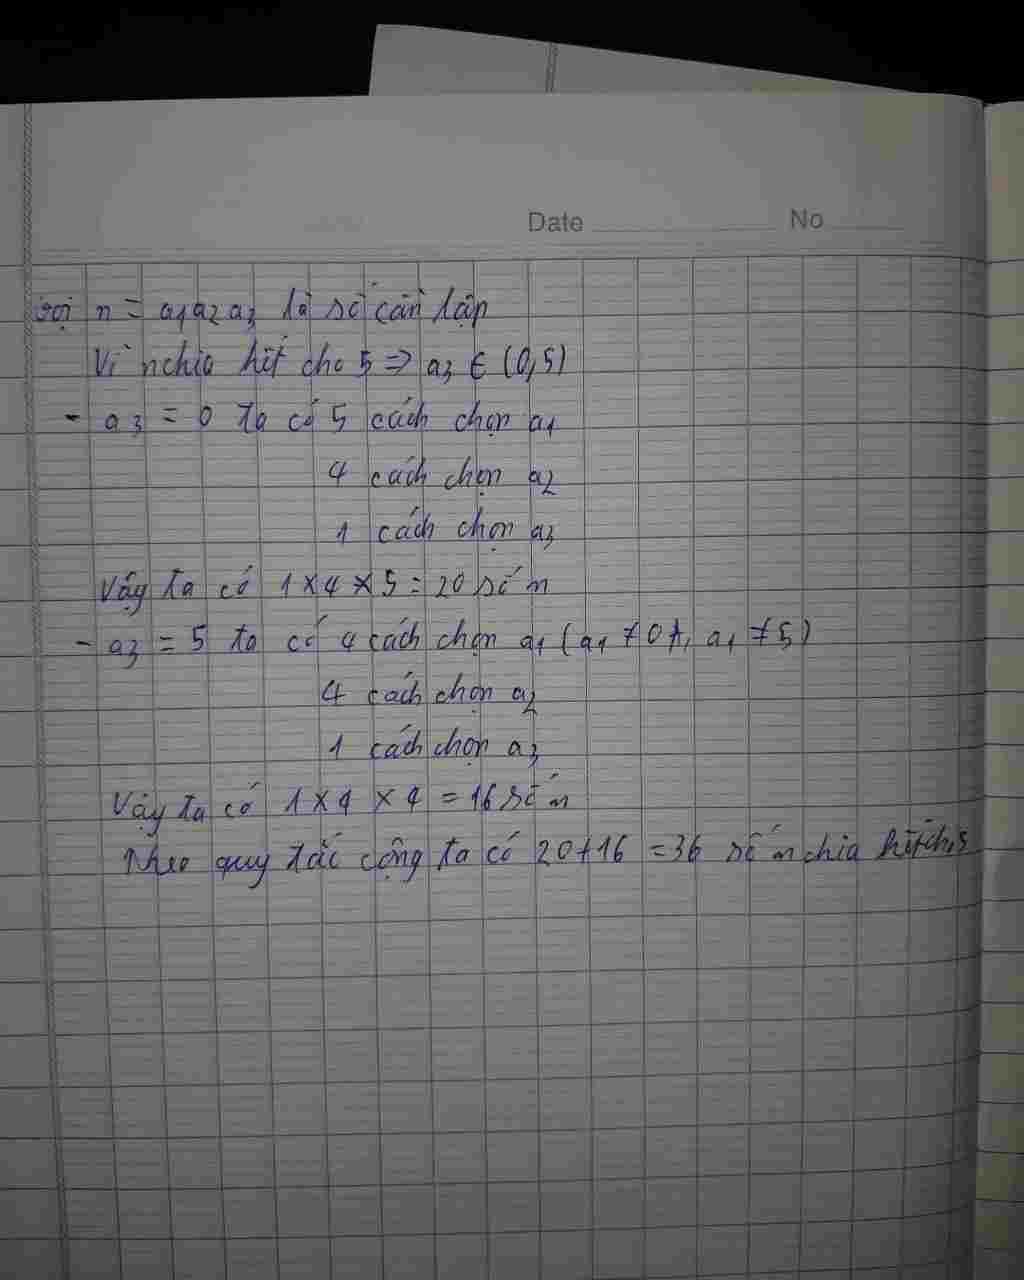 Date No
Gọi n = a1a2a3 là số cần lập
Vì n chia hết cho 5 => a3 ∈ (0,5)
- a3 = 0 ta có 5 cách chọn a1
4 cách chọn a2
1 cách chọn a3
Vậy ta có 1 x 4 x 5 = 20 số n
- a3 = 5 ta có 4 cách chọn a1 (a1 ≠ 0, a1 ≠ 5)
4 cách chọn a2
1 cách chọn a3
Vậy ta có 1 x 4 x 4 = 16 số n
Theo quy tắc cộng ta có 20+16 = 36 số n chia hết cho 5